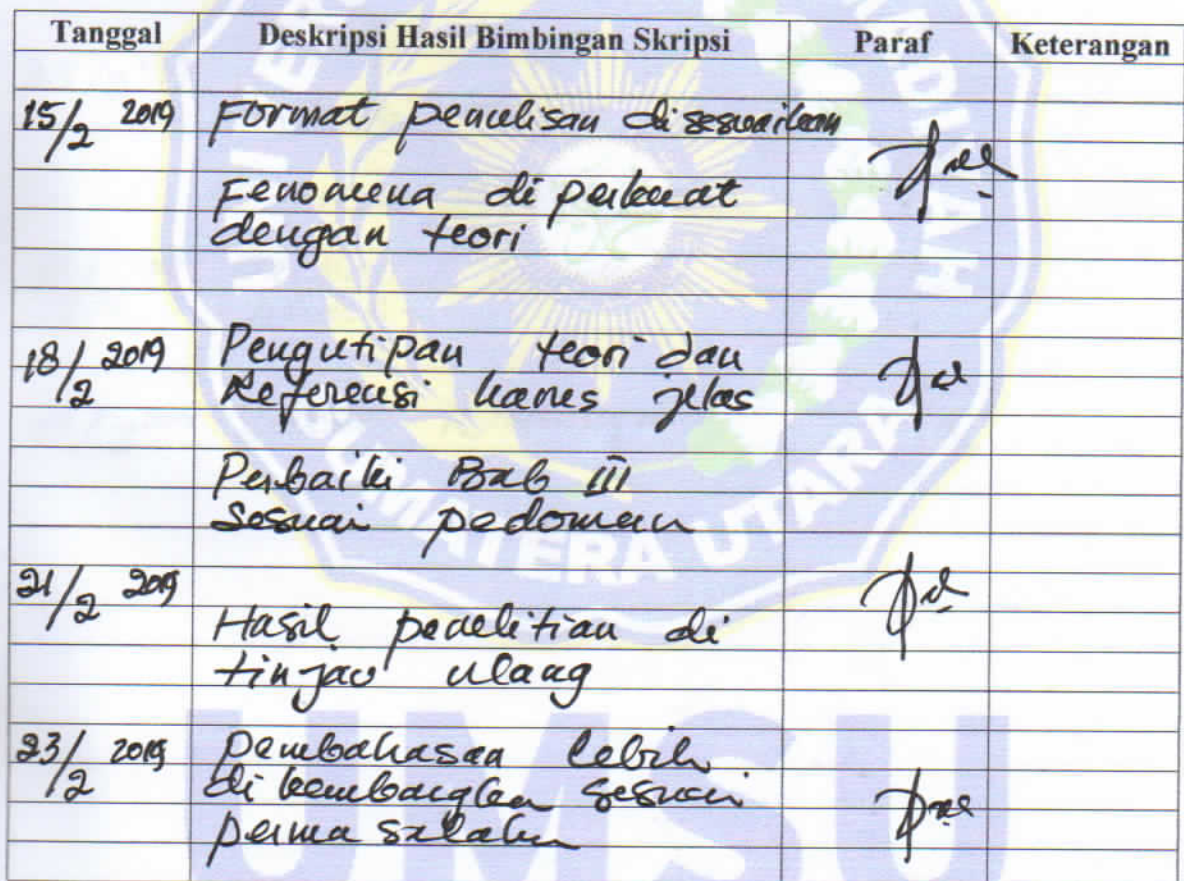 Tanggal Deskripsi Hasil Bimbingan Skripsi Paraf Keterangan
15/2 2019 Format penulisan disesuaikan
Fenomena di perkuat
dengan teori
18/2 2019 Pengutipan teori dan
Referensi harus jelas
Perbaiki Bab III
Sesuai pedoman
21/2 2019
Hasil penelitian di
tinjau ulang
23/2 2019 Pembahasan lebih
di kembangkan sesuai
permasalahan
SUMATERA UTARA
UMSU